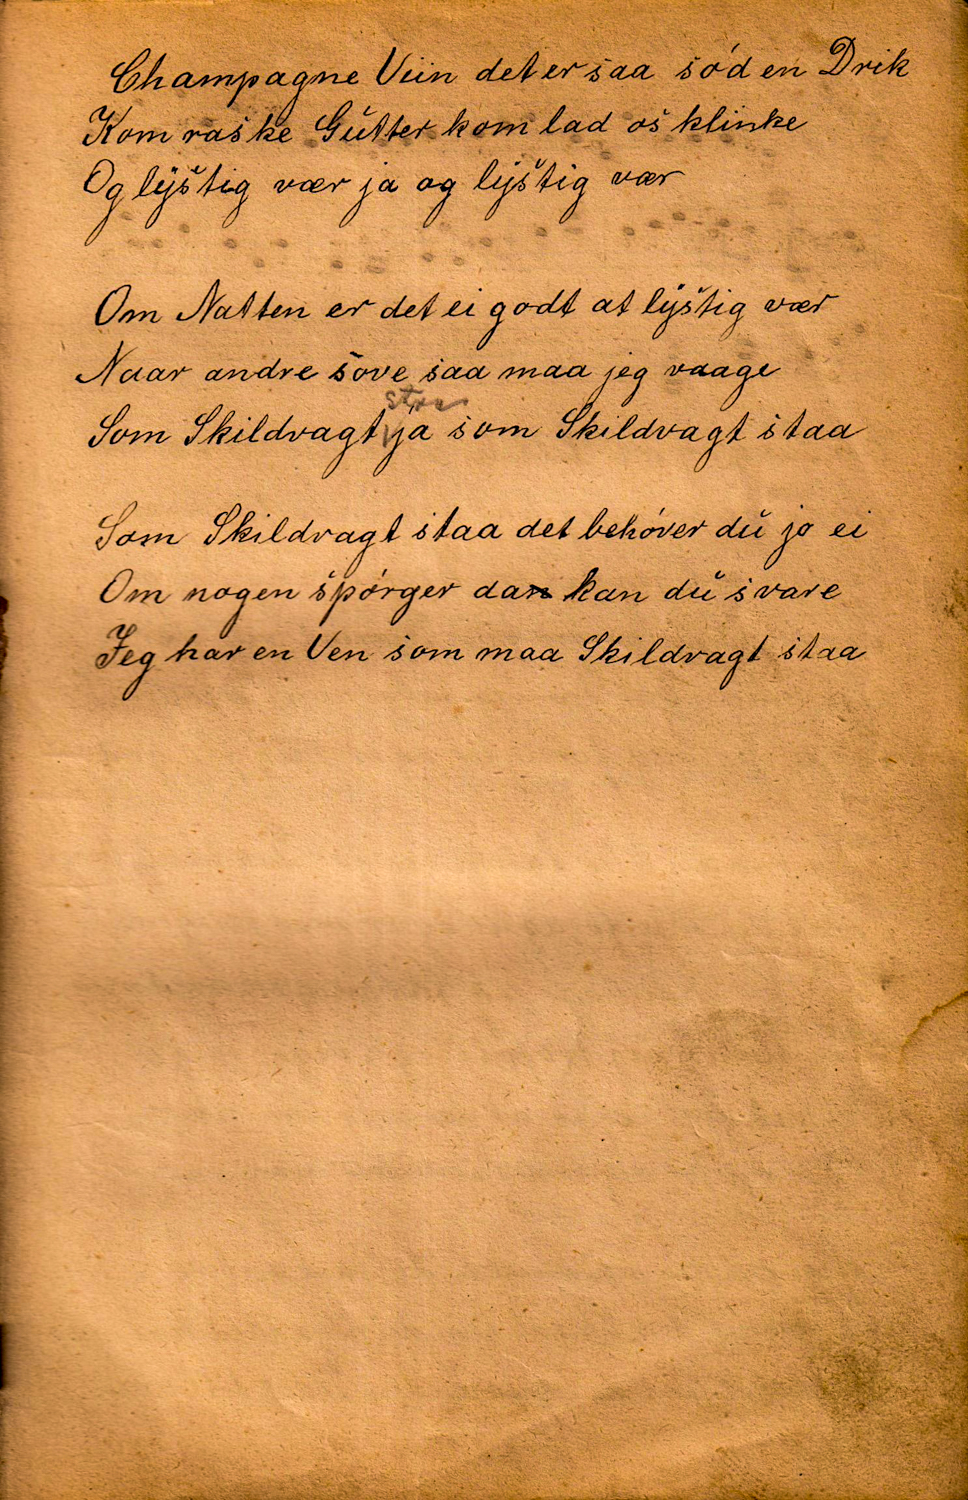 Champagne Viin det er saa sød en Drik
Kom raske Gutter kom lad os klinke
Og lÿstig vær ja og lÿstig vær
Om Natten er det ei godt at lÿstig vær
Naar andre sove saa maa jeg vaage
Som Skildvagt ja som Skildvagt staa
Som Skildvagt staa det behøver du jo ei
Om nogen spørger da kan du svare
Jeg har en Ven som maa Skildvagt staa